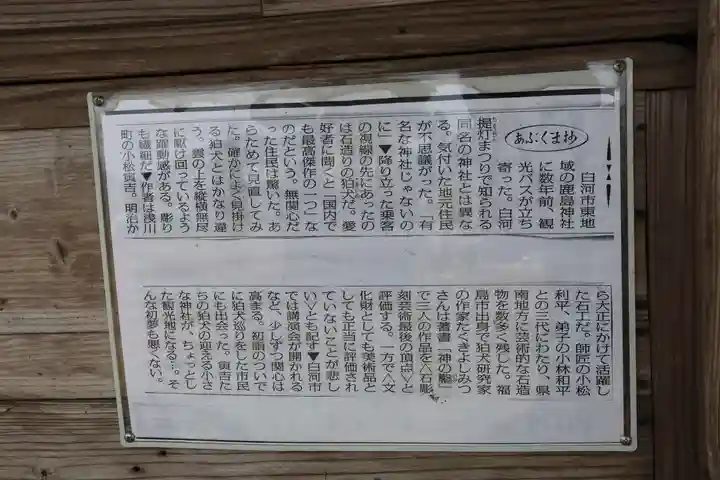 あぶくま抄
白河市東地
域の鹿島神社
に数年前、観
光バスが立ち
寄った。白河
提灯まつりで知られる
同名の神社とは異な
る。気付いた地元住民
が不思議がった。「有
名な神社じゃないの
に」▼降り立った乗客
の視線の先にあったの
は石造りの狛犬だ。愛
好者に聞くと「国内で
も最高傑作の一つ」な
のだという。無関心だ
った住民は驚いた。あ
らためて見直してみ
た。確かによく見掛け
る狛犬とはかなり違
う。雲の上を縦横無尽
に駆け回っているよう
な躍動感がある。彫り
も繊細だ▼作者は浅川
町の小松寅吉。明治か
ら大正にかけて活躍し
た石工だ。師匠の小松
利平、弟子の小林和平
との三代にわたり、県
南地方に芸術的な石造
物を数多く残した。福
島市出身で狛犬研究家
の作家たくきよしみつ
さんは著書「神の鑿」
で三人の作品を〈石彫
刻芸術最後の頂点〉と
評価する。一方で〈文
化財としても美術品と
しても正当に評価され
ていないことが悲し
い〉とも記す▼白河市
では講演会が開かれる
など、少しずつ関心は
高まる。初詣のついで
に狛犬巡りをした市民
にも出会った。寅吉た
ちの狛犬の迎える小さ
な神社が、ちょっとし
た観光地になる…。そ
んな初夢も悪くない。